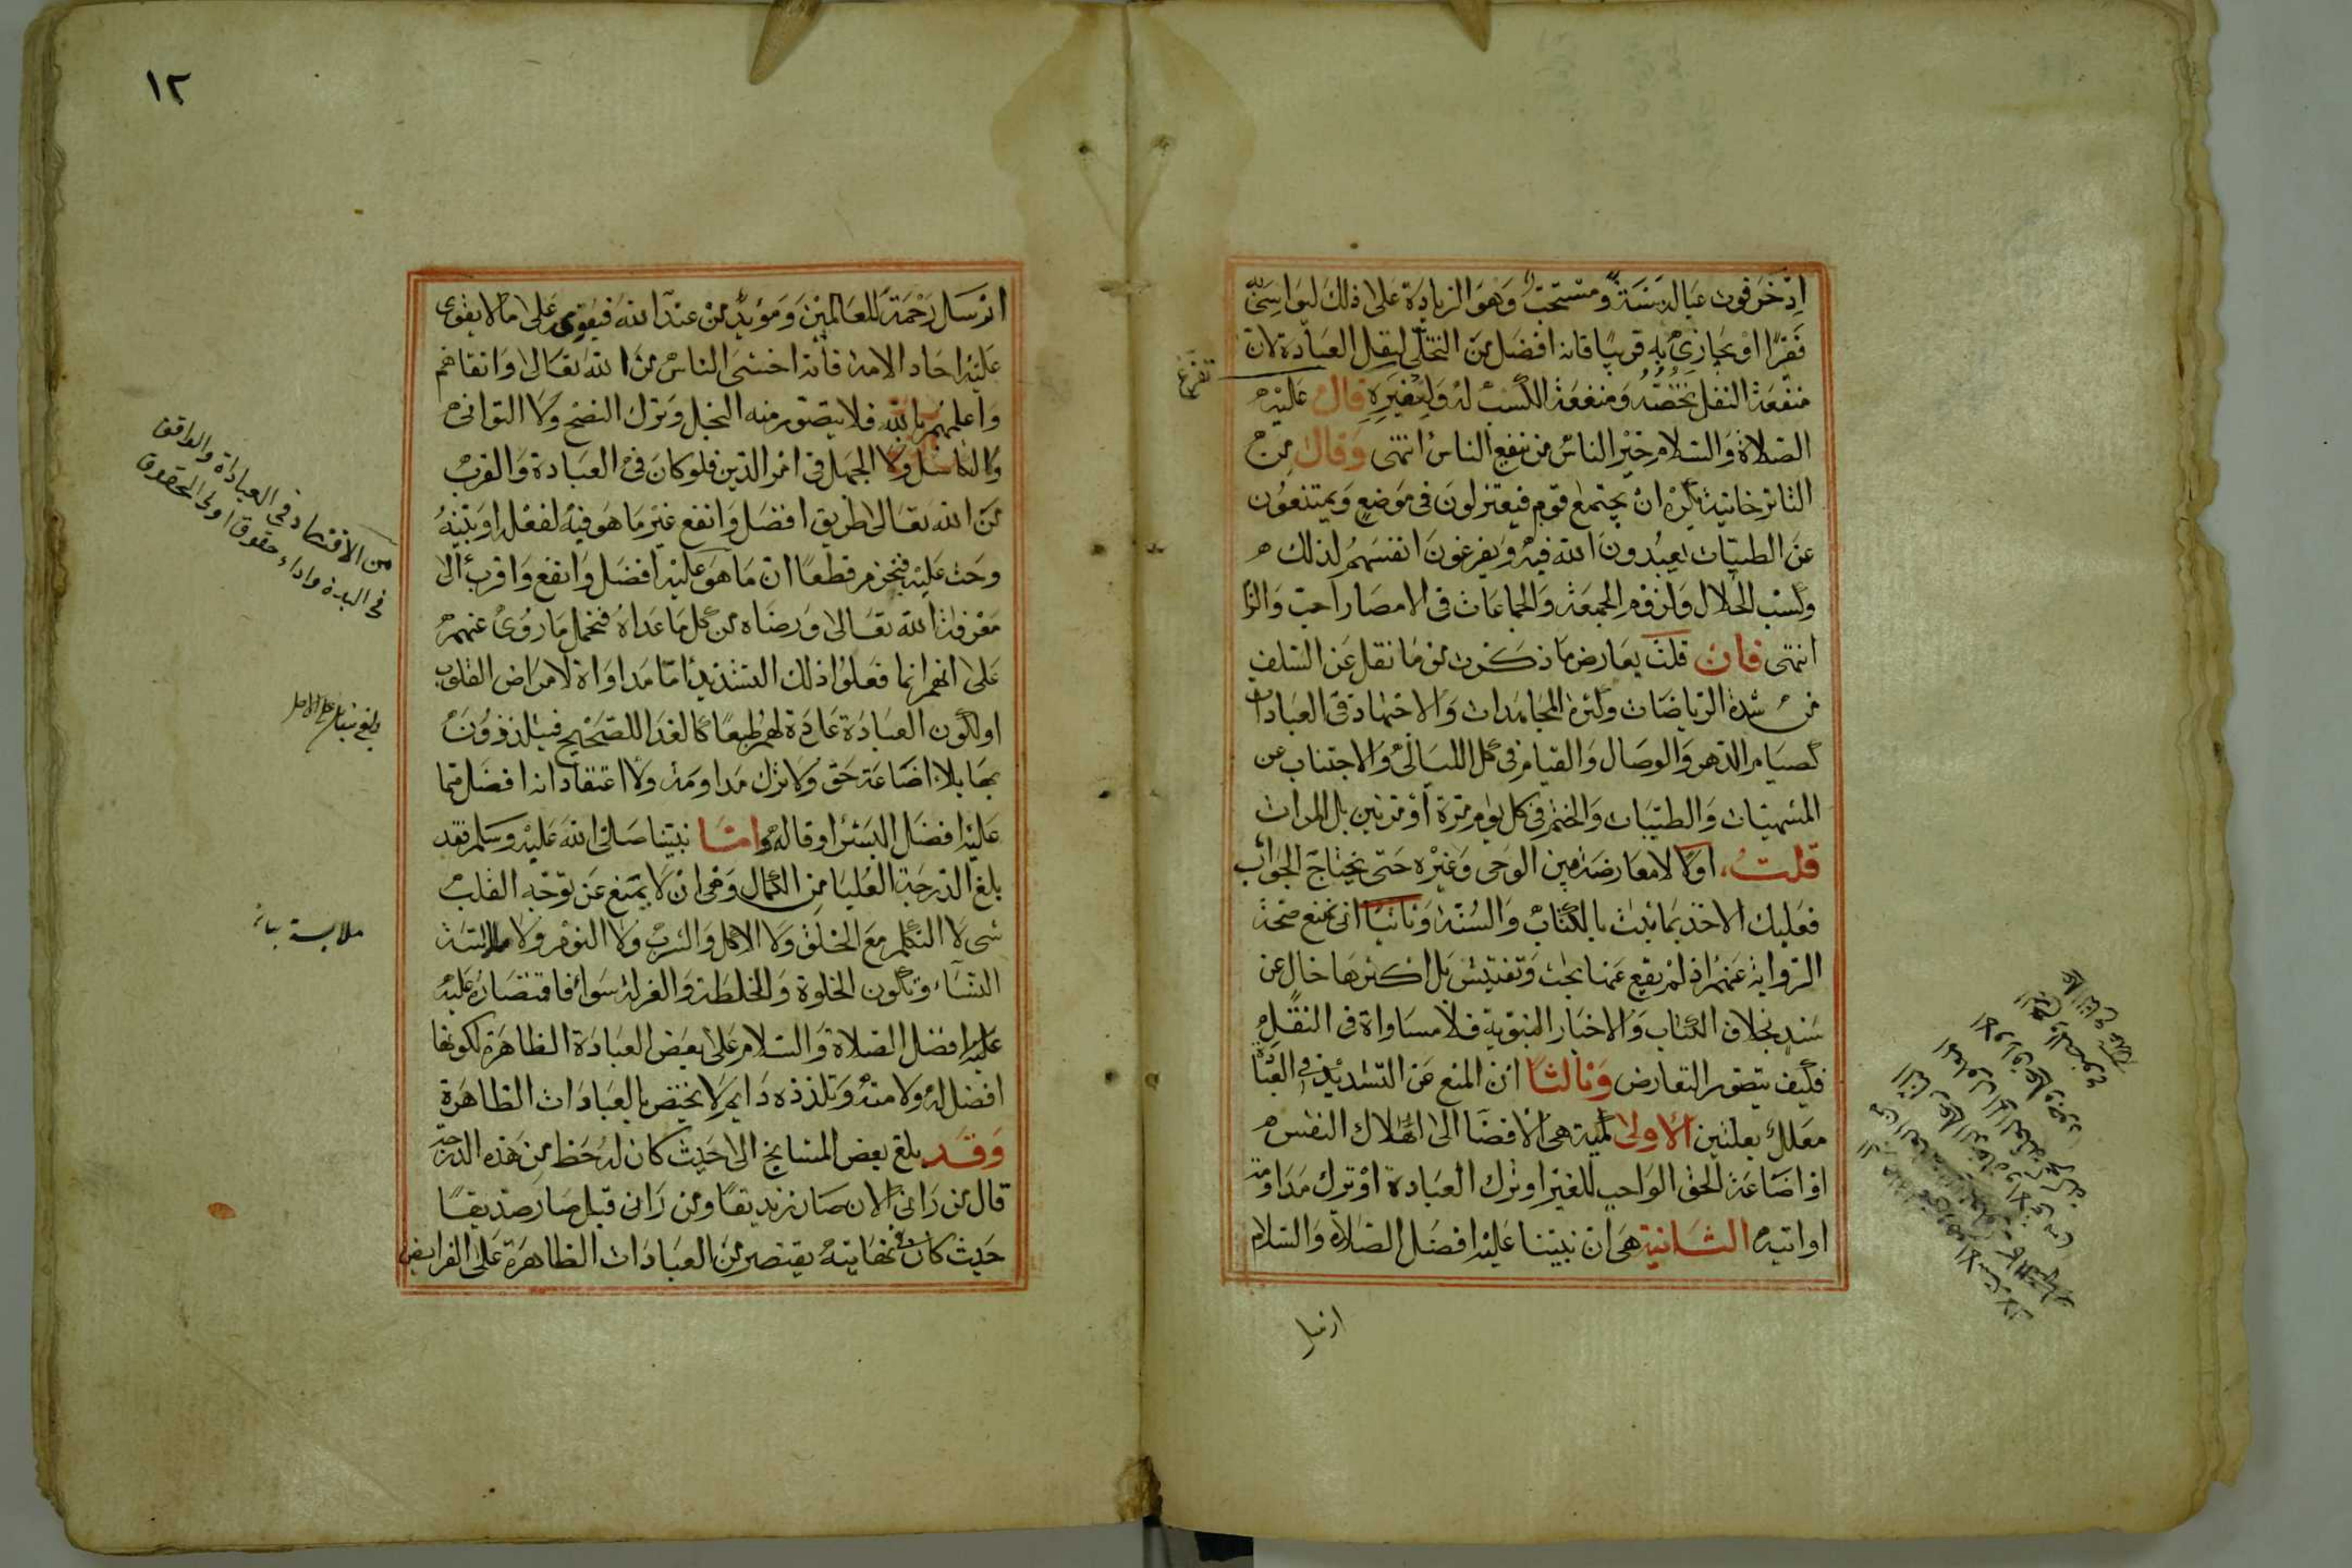 ادخر قوت عياله سنة ومستحب وهو الزيادة على ذلك ليواسي به
فقيرا او يجازي به قريبا فانه افضل من التخلي لنفل العبادة لان
منفعة النفل تخصه ومنفعة الكسب له ولغيره قال عليه
الصلاة والسلام خير الناس من ينفع الناس انتهى وقال في
التاترخانية يكره ان يجتمع قوم فيعتزلون في موضع ويمتنعون
عن الطيبات يعبدون الله فيه ويفرغون انفسهم لذلك
وكسب الحلال ولزوم الجمعة والجماعات في الامصار احب والزم
انتهى فان قلت يعارض ما ذكرت من ما نقل عن السلف
من شدة الرياضات وكثرة المجاهدات والاجتهاد في العبادات
كصيام الدهر والوصال والقيام في كل الليالي والاجتناب عن
المشتهيات والطيبات والختم في كل يوم مرة او مرتين بل المرات
قلت اولا لا معارضة بين الوحي وغيره حتى يحتاج الجواب
فعليك الاخذ بما يثبت بالكتاب والسنة وثانيا انى نمنع صحة
الرواية عنهم اذ لم يقع عنها بحث وتفتيش بل اكثرها خال عن
سند بخلاف الكتاب والاخبار النبوية فلا مساواة في النقل
فكيف يتصور التعارض وثالثا ان المنع عن التشديد في العبادة
معلل بعلتين الاولى لمية هي الافضا الى اهلاك النفس
او اضاعة الحق الواجب للغير او ترك العبادة او ترك مداومة
او اتيه الثانية هي ان نبينا عليه افضل الصلاة والسلام
ارسل
١٢
ارسل رحمة للعالمين ومؤيد من عند الله فيقوى على ما لا يقوى
عليه احاد الامة فانه اخشى الناس من الله تعالى واتقاهم
واعلمهم بالله فلا يتصور منه البخل وترك النصح ولا التوانى
والتكاسل ولا الجهل في امر الدين فلو كان في العبادة والقرب
من الله تعالى طريق افضل وانفع غير ما هو فيه لفعل او بينه
وحث عليه فنجزم قطعا ان ما هو عليه افضل وانفع واقرب الى
معرفة الله تعالى ورضاه من كل ما عداه فنحمل ما روى عنهم
على انهم انما فعلوا ذلك التشديد اما مداواة لامراض القلوب
او لكون العبادة عادة لهم طبعا كالغدا للصحيح فيتلذذون
بها بلا اضاعة حق ولا ترك مداومة ولا اعتقاد انه افضل مما
عليه افضل البشر او قاله واما نبينا صلى الله عليه وسلم فقد
بلغ الدرجة العليا من الكمال وهي ان لا يمنع عن توجه القلب
شي لا التكلم مع الخلق ولا الاكل والشرب ولا النوم ولا ملابسة
النساء وتكون الخلوة والخلطة والعزلة سوائ فاقتصاره عليه
عليه افضل الصلاة والسلام على بعض العبادة الظاهرة لكونها
افضل له ولامته وتلذذه دايم لا يختص بالعبادات الظاهرة
وقد بلغ بعض المشايخ الى حيث كان له حظ من هذه الدرجة
قال من راني الان صار زنديقا ومن راني قبل صار صديقا
حيث كان في نهايته يقتصر من العبادات الظاهرة على الفرايض
من الاقتصاد في العبادة
ملابسة